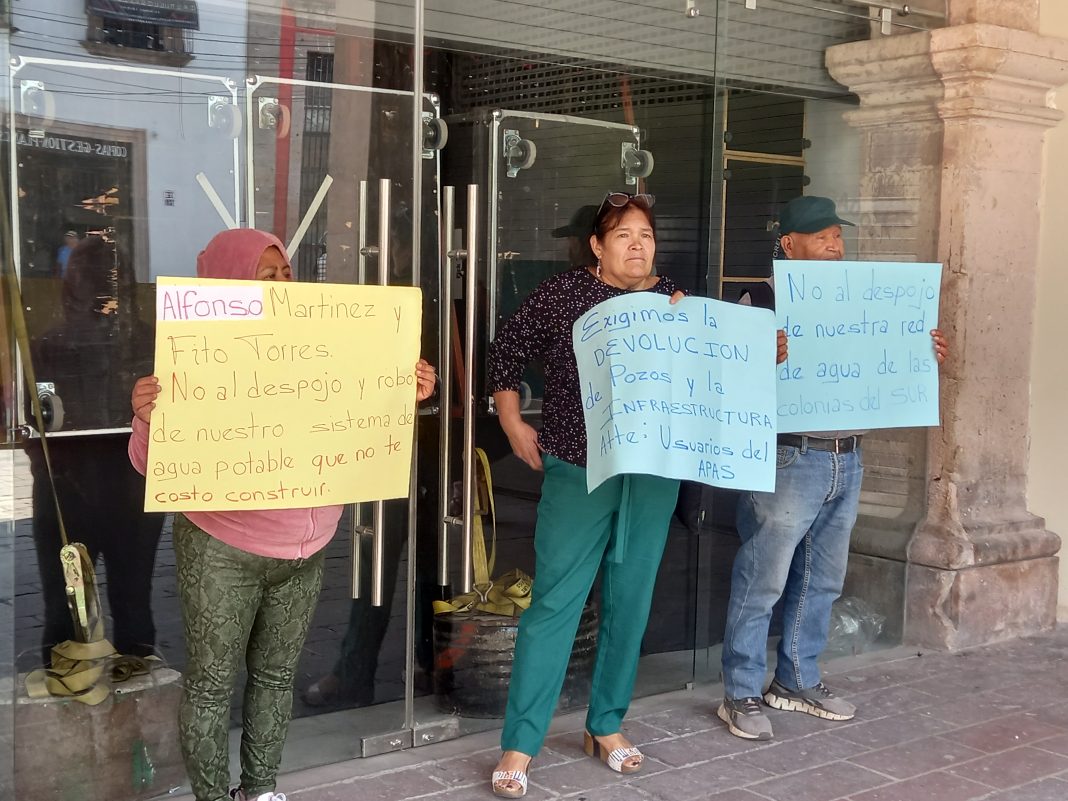 COPIAS-GESTION-PLA
Alfonso Martinez y
Fito Torres.
No al despojo y robo
de nuestro sistema de
agua potable que no te
costo construir.
Exigimos la
DEVOLUCION
de Pozos y la
INFRAESTRUCTURA
Atte: Usuarios del
APAS
No al despojo
de nuestra red
de agua de las
colonias del SUR